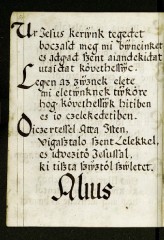 Ur Jesus kerijnk tegedet
bocsasd meg mi bijneinket
es adgad szent aiandekidat
utaidat követhessijc.
Legen az zijznek elete
mi eletijnknek tijköre
hog követhessijk hitiben
es io czelekedetiben.
Diczertessel Atta Isten,
vigasztalo szent Lelekkel,
es üdvezitö Jesussal,
ki tiszta szijztöl szijletet.
Alius